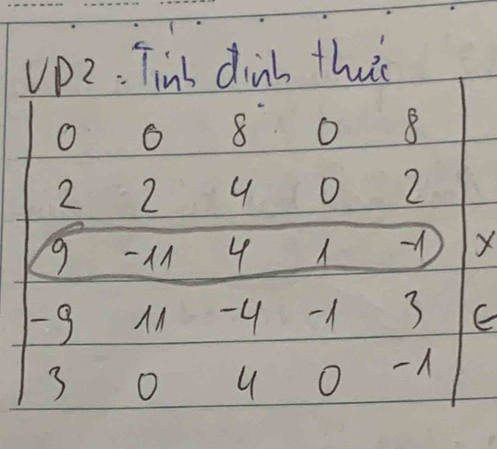 VD2: Tính định thức
0 0 8 0 8
2 2 4 0 2
9 -11 4 1 -1 x
-9 11 -4 -1 3
3 0 4 0 -1